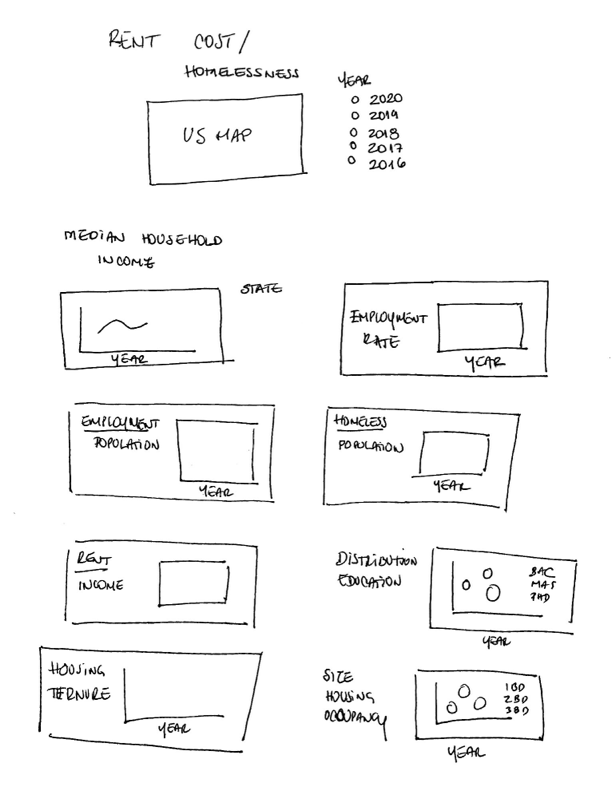 RENT COST/
HOMELESSNESS
YEAR
2020
2019
2018
2017
2016
US MAP
MEDIAN HOUSEHOLD
INCOME
STATE
YEAR
EMPLOYMENT
RATE
YEAR
EMPLOYMENT
POPOLATION
YEAR
HOMELESS
POPULATION
YEAR
RENT
INCOME
DISTRIBUTION
EDUCATION
BAC
MAS
PHD
YEAR
HOUSING
TERNURE
YEAR
SIZE
HOUSING
OCCUPANCY
1BD
2BD
3BD
YEAR